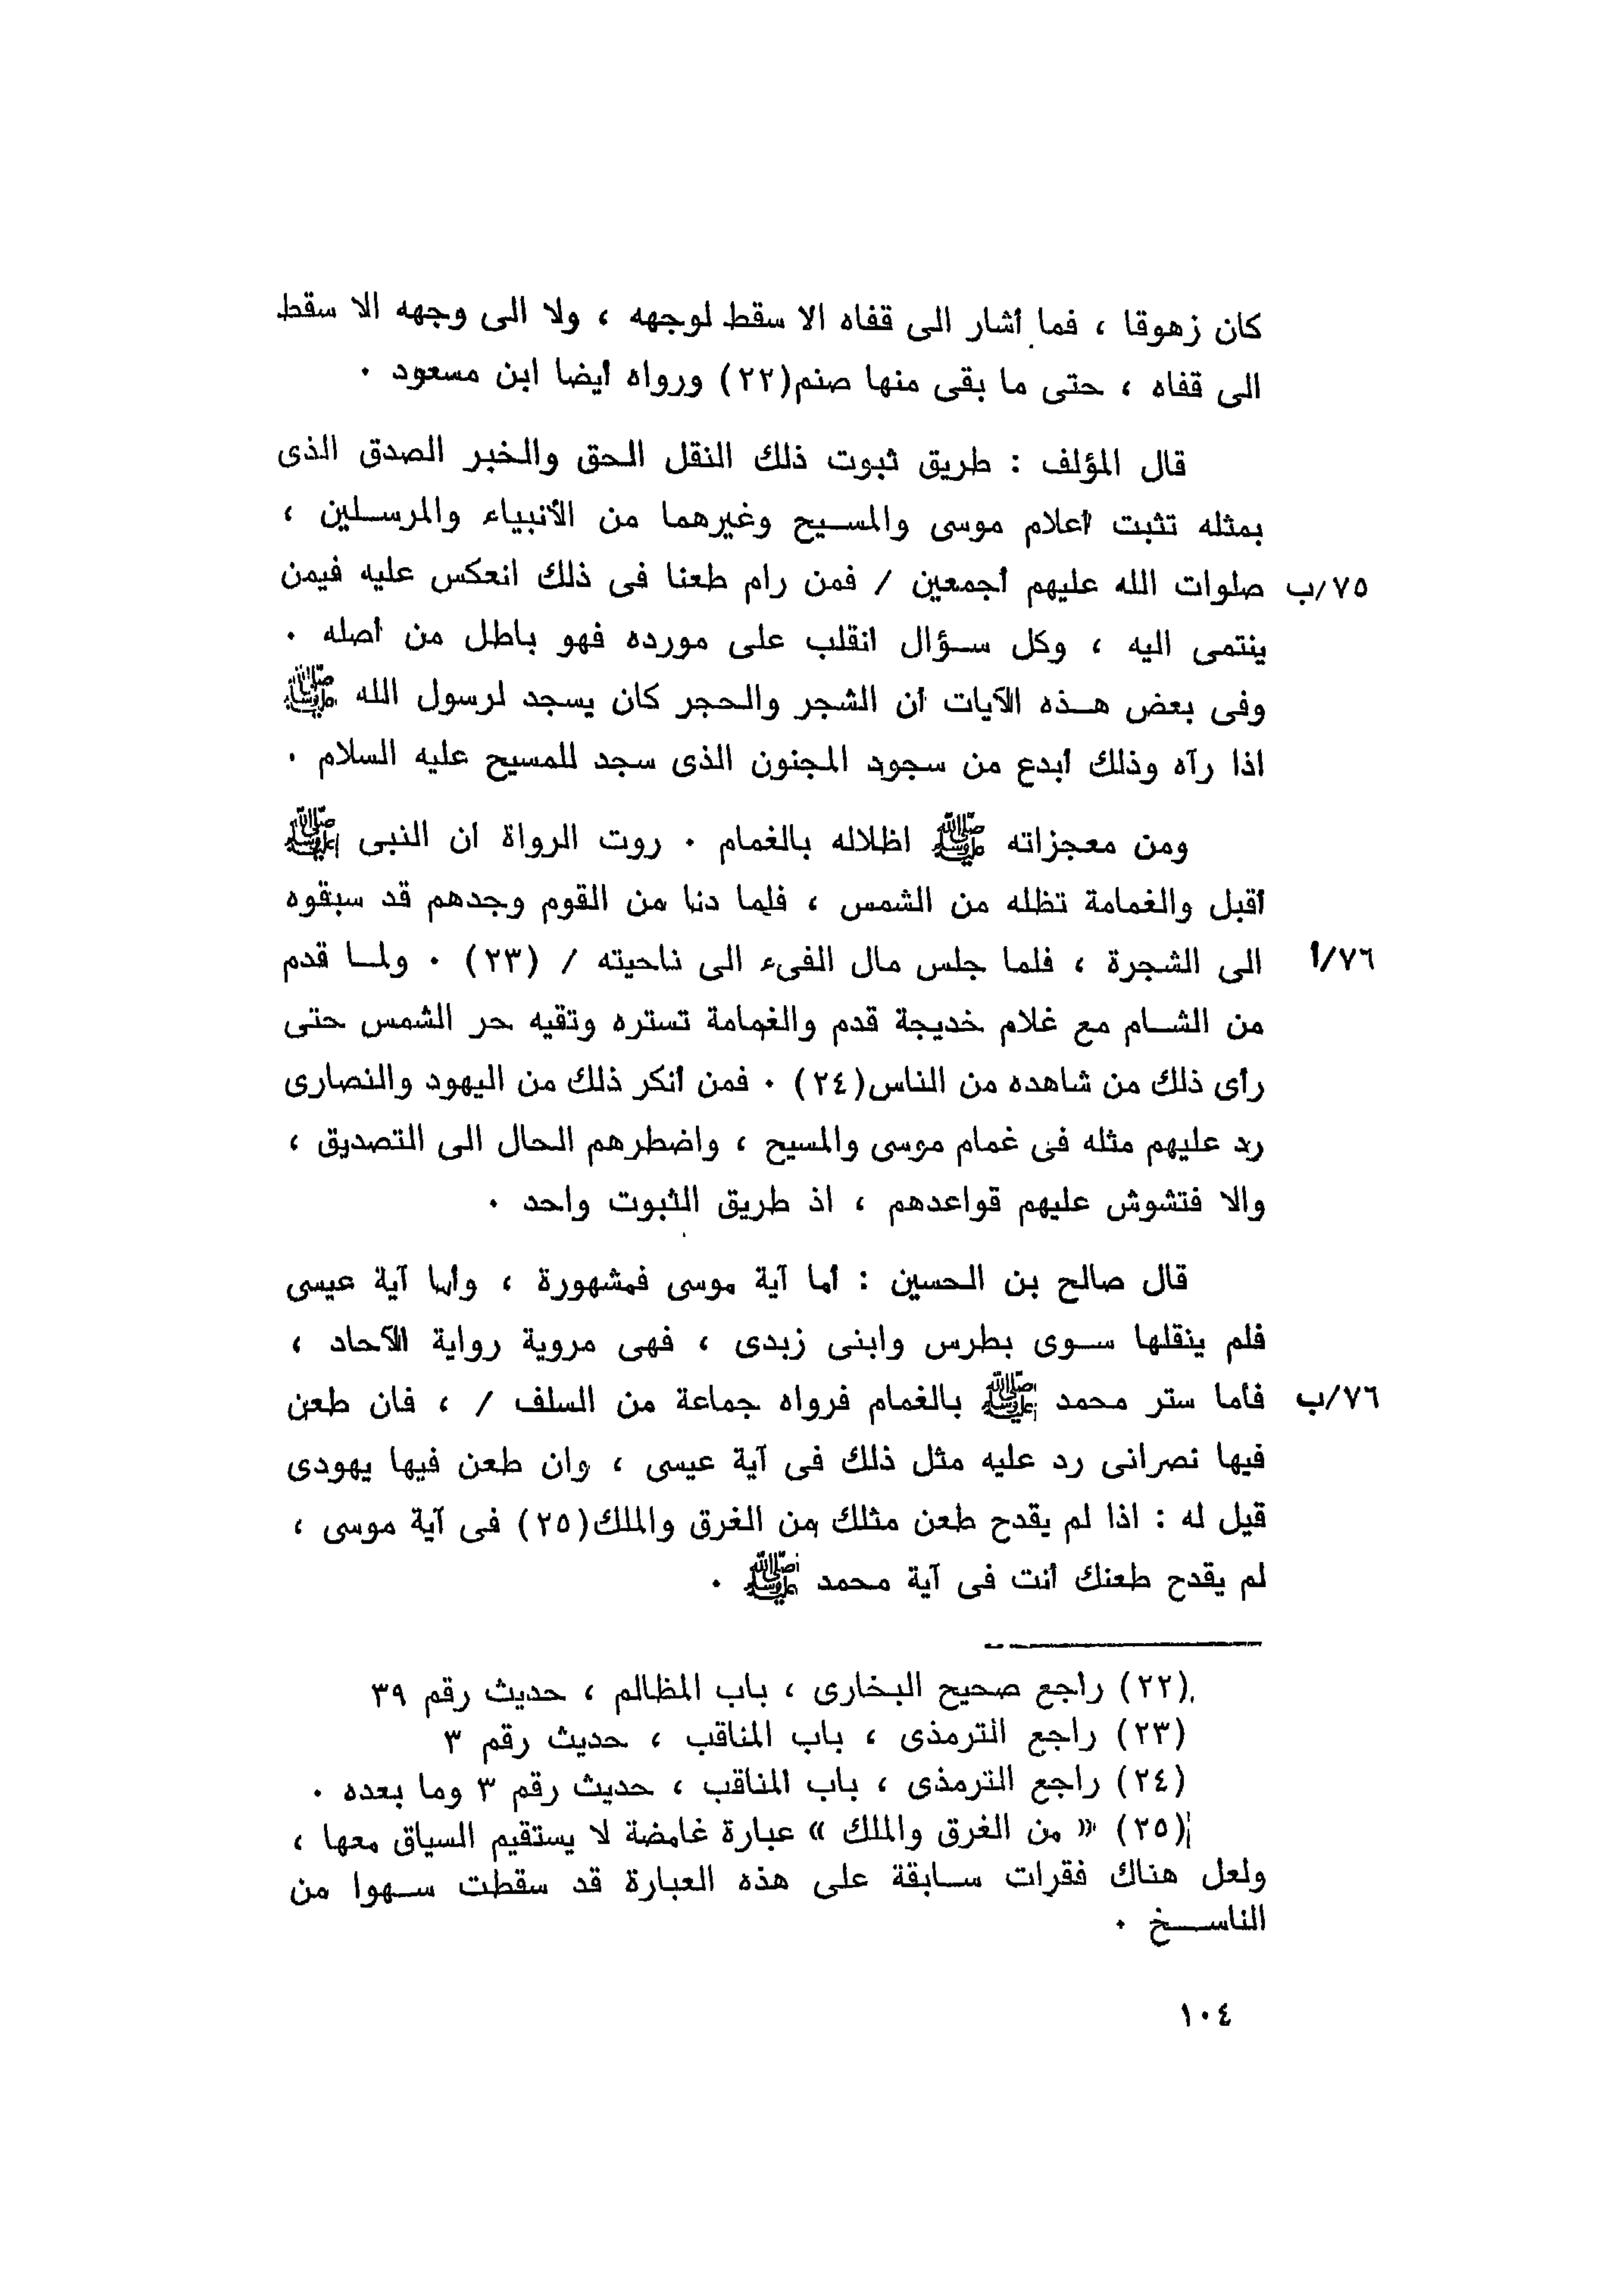 كان زهوقا ، فما أشار الى قفاه الا سقط لوجهه ، ولا الى وجهه الا سقط
الى قفاه ، حتى ما بقى منها صنم(٢٢) ورواه أيضا ابن مسعود ٠
قال المؤلف : طريق ثبوت ذلك النقل الحق والخبر الصدق الذى
بمثله تثبت أعلام موسى والمسيح وغيرهما من الأنبياء والمرسلين ،
٧٥/ب صلوات الله عليهم أجمعين / فمن رام طعنا فى ذلك انعكس عليه فيمن
ينتمى اليه ، وكل سؤال انقلب على مورده فهو باطل من أصله ٠
وفى بعض هذه الآيات أن الشجر والحجر كان يسجد لرسول الله ﷺ
اذا رآه وذلك أبدع من سجود المجنون الذى سجد للمسيح عليه السلام ٠
ومن معجزاته ﷺ اظلاله بالغمام ٠ روت الرواة ان النبى ﷺ
أقبل والغمامة تظله من الشمس ، فلما دنا من القوم وجدهم قد سبقوه
٧٦/أ الى الشجرة ، فلما جلس مال الفىء الى ناحيته / (٢٣) ٠ ولما قدم
من الشام مع غلام خديجة قدم والغمامة تستره وتقيه حر الشمس حتى
رأى ذلك من شاهده من الناس(٢٤) ٠ فمن أنكر ذلك من اليهود والنصارى
رد عليهم مثله فى غمام موسى والمسيح ، واضطرهم الحال الى التصديق ،
والا فتشوش عليهم قواعدهم ، اذ طريق الثبوت واحد ٠
قال صالح بن الحسين : أما آية موسى فمشهورة ، وأما آية عيسى
فلم ينقلها سوى بطرس وابنى زبدى ، فهى مروية رواية الآحاد ،
٧٦/ب فأما ستر محمد ﷺ بالغمام فرواه جماعة من السلف / ، فان طعن
فيها نصرانى رد عليه مثل ذلك فى آية عيسى ، وان طعن فيها يهودى
قيل له : اذا لم يقدح طعن مثلك من الغرق والملك(٢٥) فى آية موسى ،
لم يقدح طعنك أنت فى آية محمد ﷺ ٠
(٢٢) راجع صحيح البخارى ، باب المظالم ، حديث رقم ٣٩
(٢٣) راجع الترمذى ، باب المناقب ، حديث رقم ٣
(٢٤) راجع الترمذى ، باب المناقب ، حديث رقم ٣ وما بعده ٠
(٢٥) « من الغرق والملك » عبارة غامضة لا يستقيم السياق معها ،
ولعل هناك فقرات سابقة على هذه العبارة قد سقطت سهوا من
الناسخ ٠
١٠٤